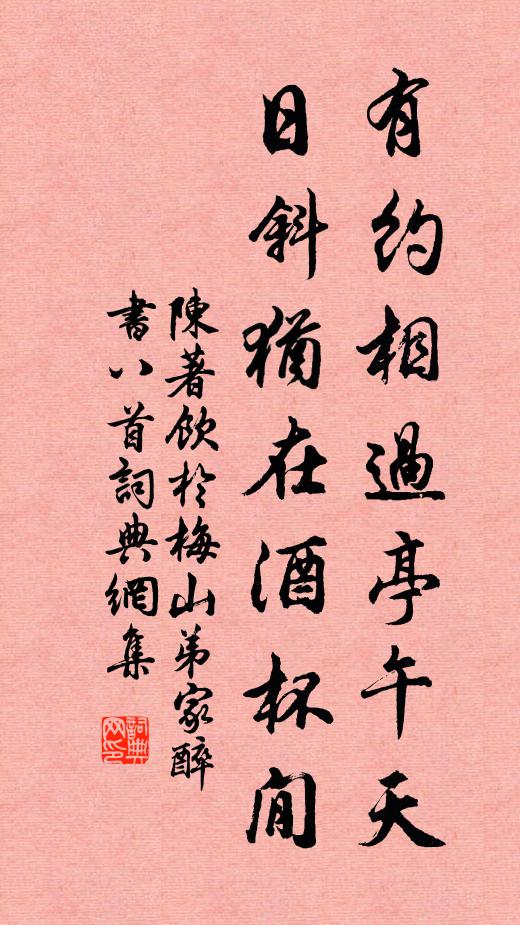 有約相過亭午天
日斜猶在酒杯間
陳著飲於梅山弟家醉
書八首詞典網集
詞典
网印